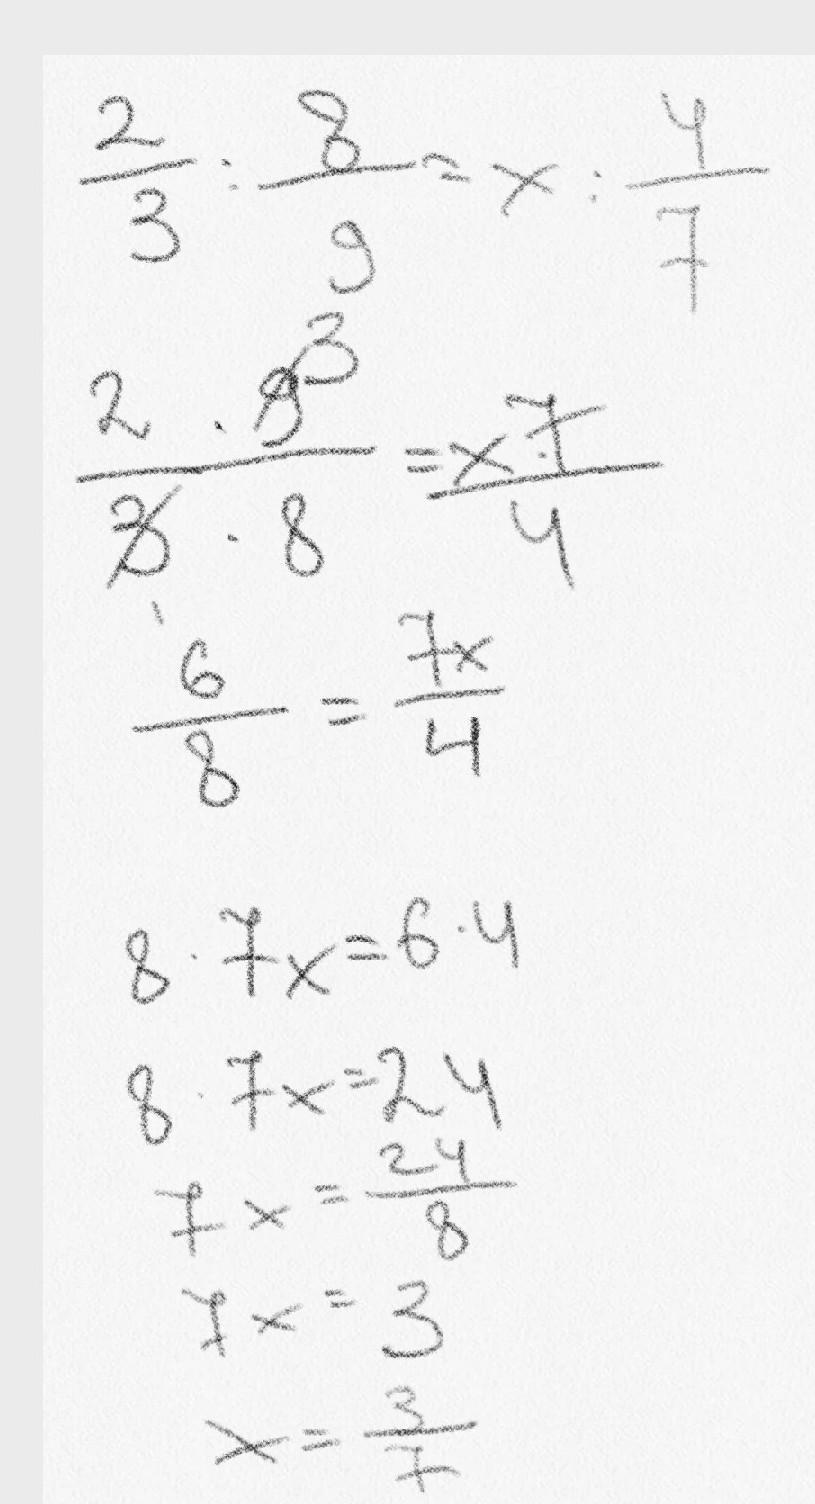 2/3 : 8/9 = x : 4/7
2 · 9 3 / 3 · 8 = x · 7 / 4
1
6/8 = 7x/4
8 · 7x = 6 · 4
8 · 7x = 24
7x = 24/8
7x = 3
x = 3/7